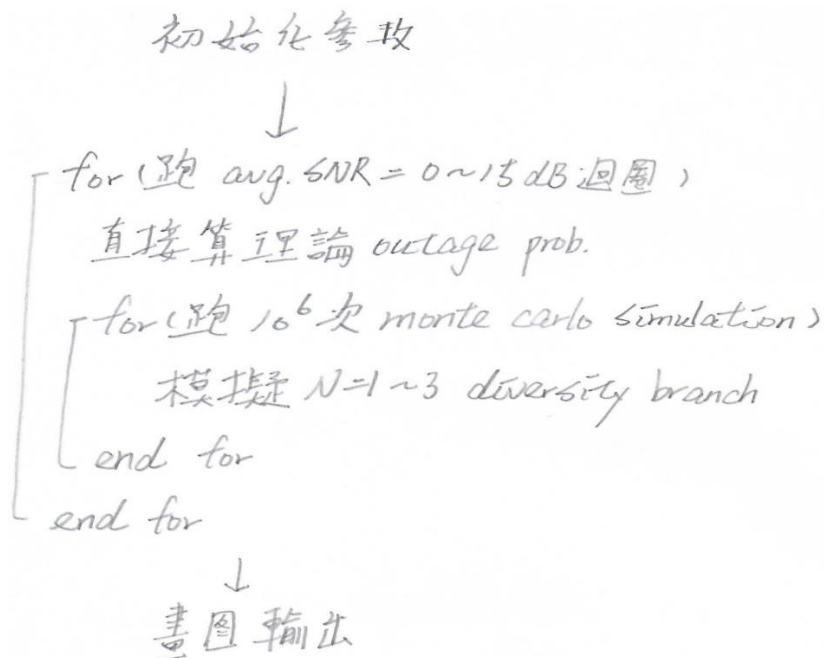 初始化參數
↓
for (跑 avg. SNR = 0~15 dB 迴圈)
直接算理論 outage prob.
for (跑 10⁶ 次 monte carlo simulation)
模擬 N=1~3 diversity branch
end for
end for
↓
畫图輸出